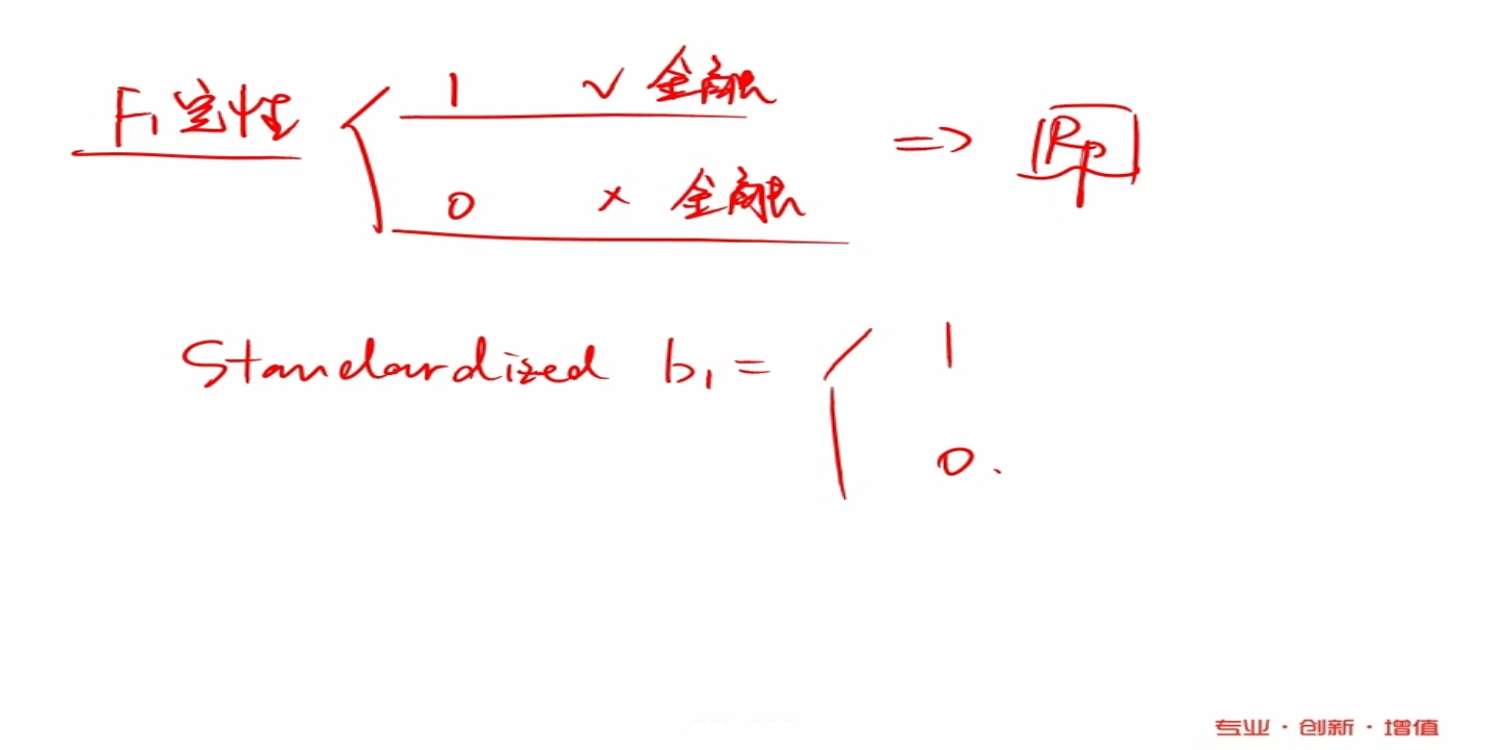 F₁定性 1 √ 金融 => Rp
0 × 金融
Standardized b₁ = 1
0.
专业·创新·增值